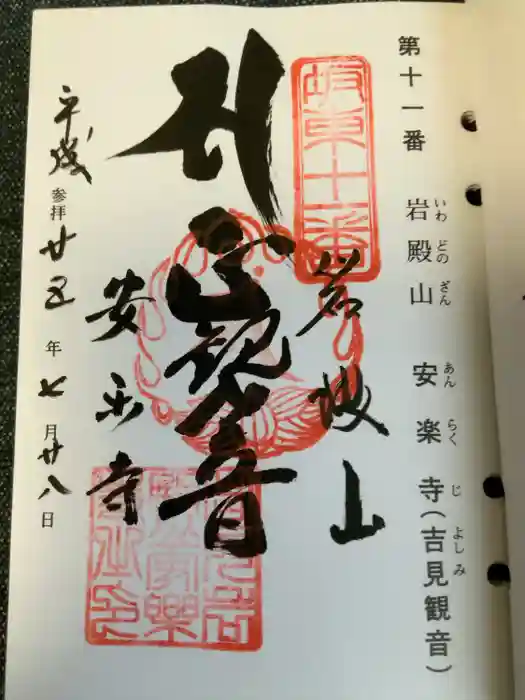 第十一番 岩殿山 安楽寺(吉見観音)
いわ どの ざん あん らく じ よしみ
坂東十一番
岩殿山
正観音
安楽寺
平成 参拝 廿五年七月廿八日